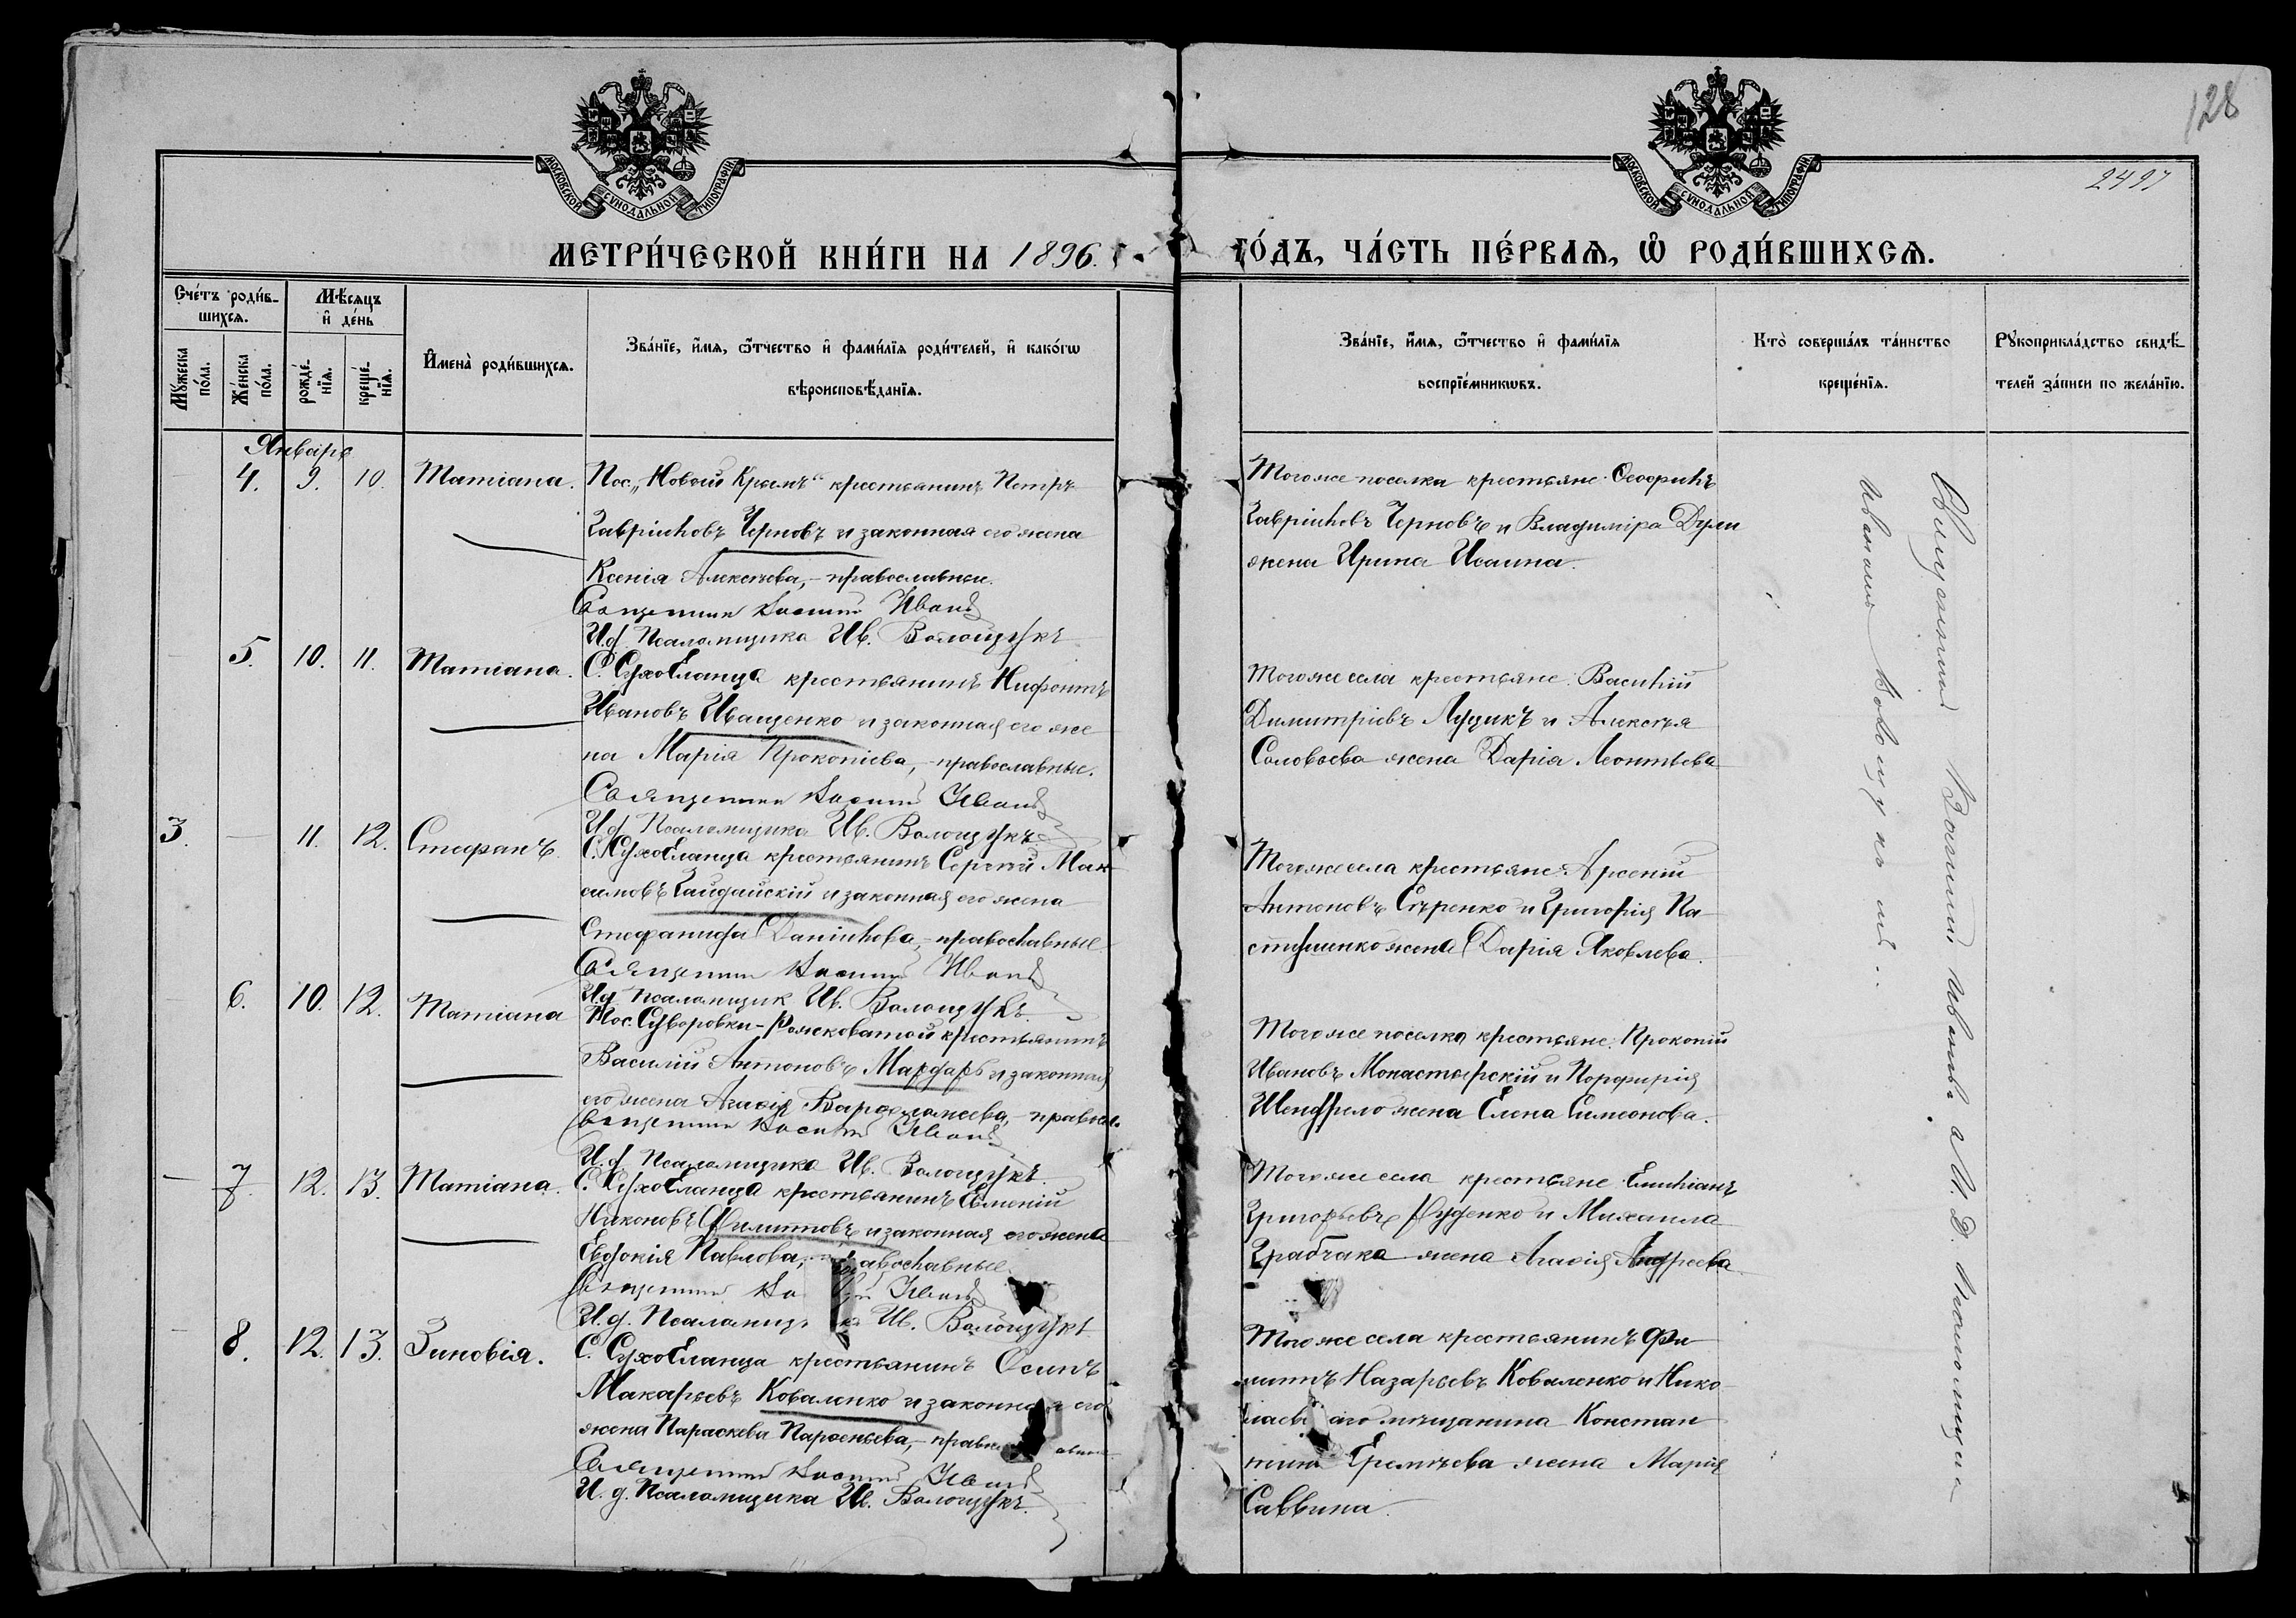 128
2497
МОСКОВСКОЙ СѴНОДАЛЬНОЙ ТИПОГРАФІИ
МОСКОВСКОЙ СѴНОДАЛЬНОЙ ТИПОГРАФІИ
МЕТРИ́ЧЕСКОЙ КНИ́ГИ НА 1896.
ГО́ДЪ, ЧА́СТЬ ПЕ́РВАѦ, Ѡ҆ РОДИ́ВШИХСѦ.
Сче́тъ роди́в-
шихсѧ.
Мꙋ́жеска по́ла.
Же́нска по́ла.
Мѣ́сѧцъ
и҆ де́нь
рожде́-нїѧ.
креще́-нїѧ.
И҆мена̀ роди́вшихсѧ.
Зва́нїе, и҆́мѧ, ѻ҆́тчество и҆ фами́лїѧ роди́телей, и҆ како́гѡ
вѣроисповѣ́данїѧ.
Зва́нїе, и҆́мѧ, ѻ҆́тчество и҆ фами́лїѧ
воспрїе́мникѡвъ.
Кто̀ соверша́лъ та́инство
креще́нїѧ.
Рꙋкоприкла́дство свидѣ́-
телей за́писи по жела́нїю.
Январь
4. 9. 10. Татіана. Пос. „Новый Крымъ“ крестьянинъ Петръ
Гавріиловъ Черновъ и законная его жена
Ксенія Алексѣева, – православные.
Священникъ Василій Ивановъ
И.д. Псаломщика Ив. Волощукъ
Тогоже поселка крестьяне: Ѳеофилъ
Гавріиловъ Черновъ и Владиміра Дули
жена Ирина Исаина.
5. 10. 11. Татіана. С. Сухо Еланца крестьянинъ Нифонтъ
Ивановъ Иващенко и законная его же
на Марія Прокопіева, – православные.
Священникъ Василій Ивановъ
И.д. Псаломщика Ив. Волощукъ
Тогоже села крестьяне: Василій
Димитріевъ Луцикъ и Алексѣя
Соловьева жена Дарія Леонтьева
3. – 11. 12. Стефанъ. С. Сухо Еланца крестьянинъ Сергѣй Мак
симовъ Гайдайскій и законная его жена
Стефанида Даніилова, – православные
Священникъ Василій Ивановъ
И.д. Псаломщик Ив. Волощукъ.
Тогоже села крестьяне: Арсеній
Антоновъ Сѣренко и Григорія Па-
стушенко жена Дарія Яковлева.
6. 10. 12. Татіана Пос. Суворовки-Рожковатой крестьянинъ
Василій Антоновъ Мардарь и законная
его жена Агаѳія Варѳоломеева, – правосл.
Священникъ Василій Ивановъ
И.д. Псаломщика Ив. Волощукъ.
Тогоже поселка крестьяне: Прокопій
Ивановъ Монастырскій и Порфирія
жена Елена Симеонова.
– 7. 12. 13. Татіана. С. Сухо Еланца крестьянинъ Евменій
Никоновъ Филиповъ и законная его жена
Евдокія Павлова, – православные.
Священникъ Василій Ивановъ
И.д. Псаломщика Ив. Волощукъ
Тогоже села крестьяне: Емиліанъ
Григорьевъ Руденко и Михаила
Грабчака жена Агаѳія Андреева.
8. 12. 13. Зиновія. С. Сухо Еланца крестьянинъ Осипъ
Макарьевъ Коваленко и законная его
жена Параскева Парѳеньева, – православные
Священникъ Василій Ивановъ
И.д. Псаломщика Ив. Волощукъ.
Тогоже села крестьянинъ Фи
липпъ Назарьевъ Коваленко и Нико
лаевскаго мѣщанина Констан
тина Еремѣева жена Марія
Саввина.
Священникъ Василій Ивановъ и И. Д. Псаломщика
Иваномъ Волощукомъ.